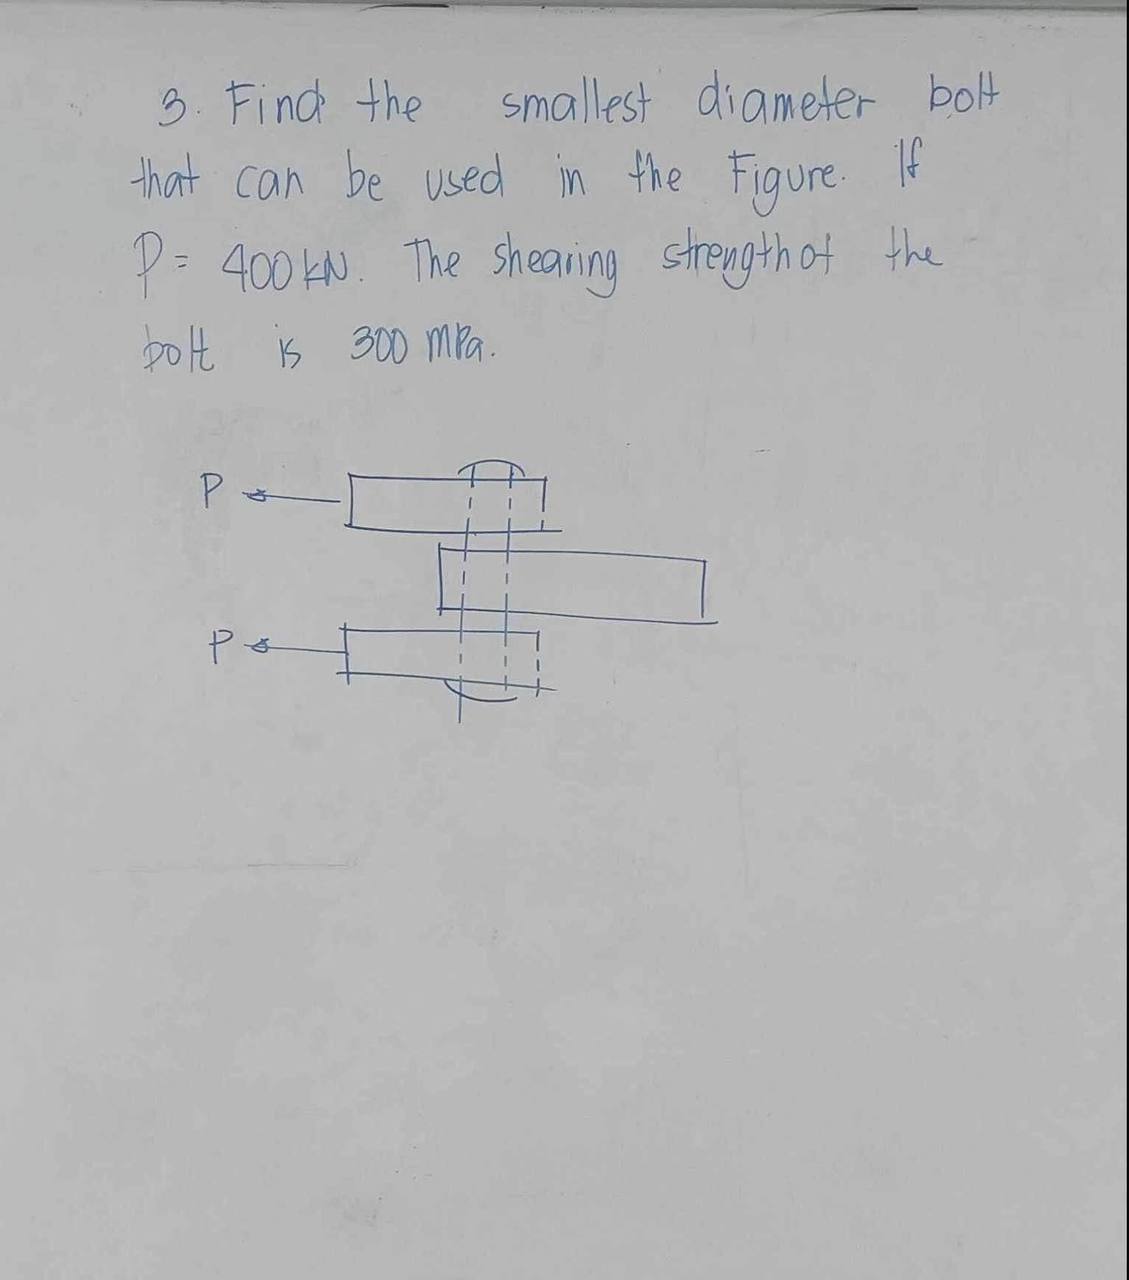 3. Find the smallest diameter bolt
that can be used in the Figure. If
P = 400 kN. The shearing strength of the
bolt is 300 mPa.
P
P